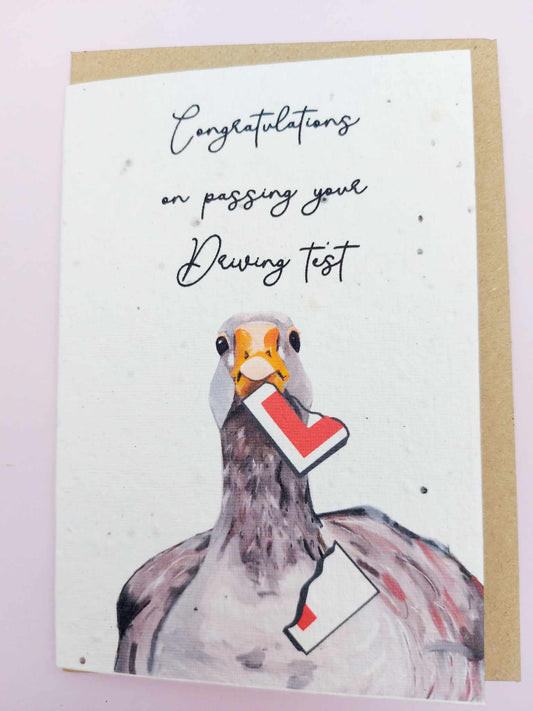 Congratulations
on passing your
Driving test
L